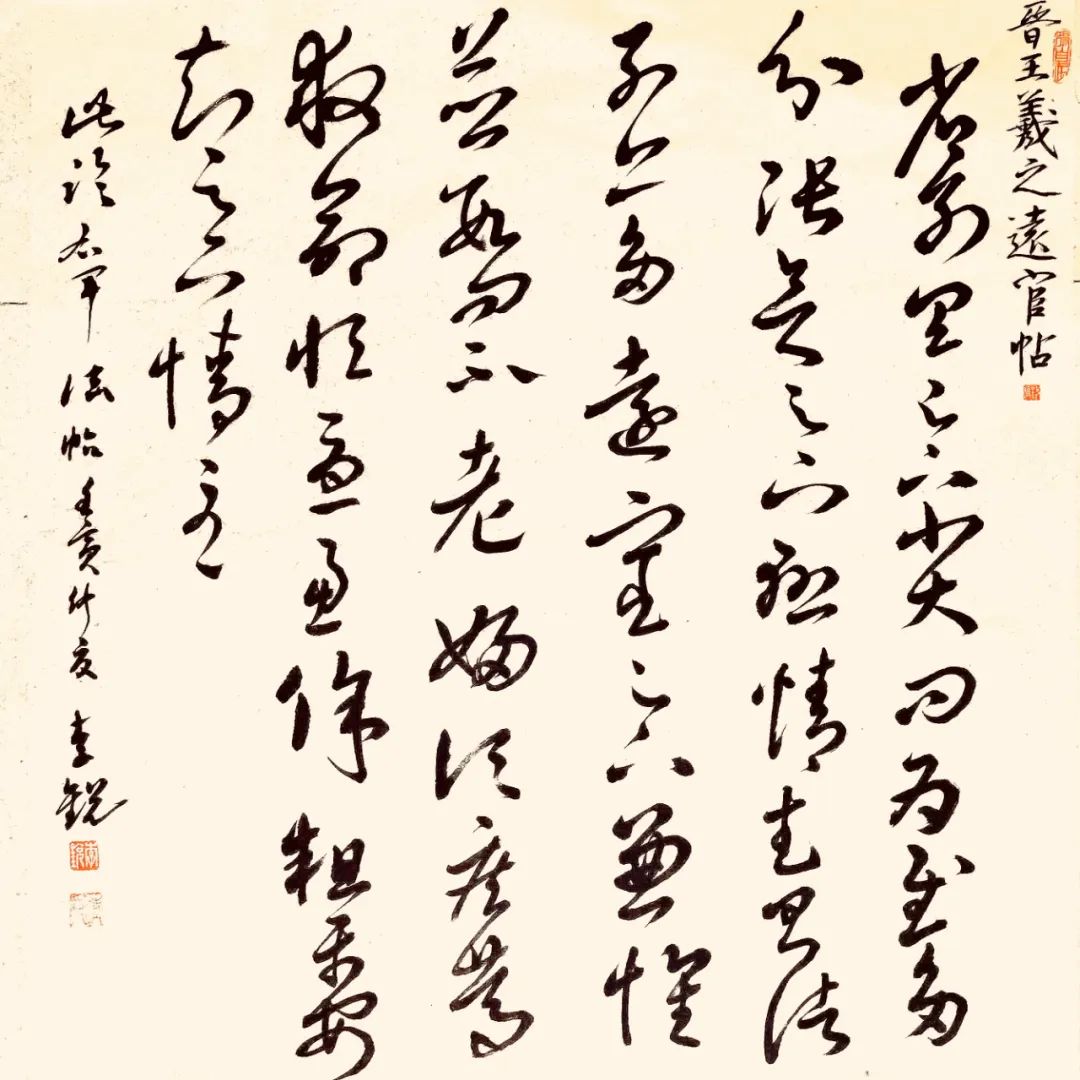 晉王羲之遠宦帖
省別具足下小大問為慰多
分張念足下懸情武昌諸
子亦多遠宦足下兼懷
並數問不老婦頃疾篤
救命恒憂慮餘粗平安
知足下情至
此臨右軍法帖壬寅仲夏李銳